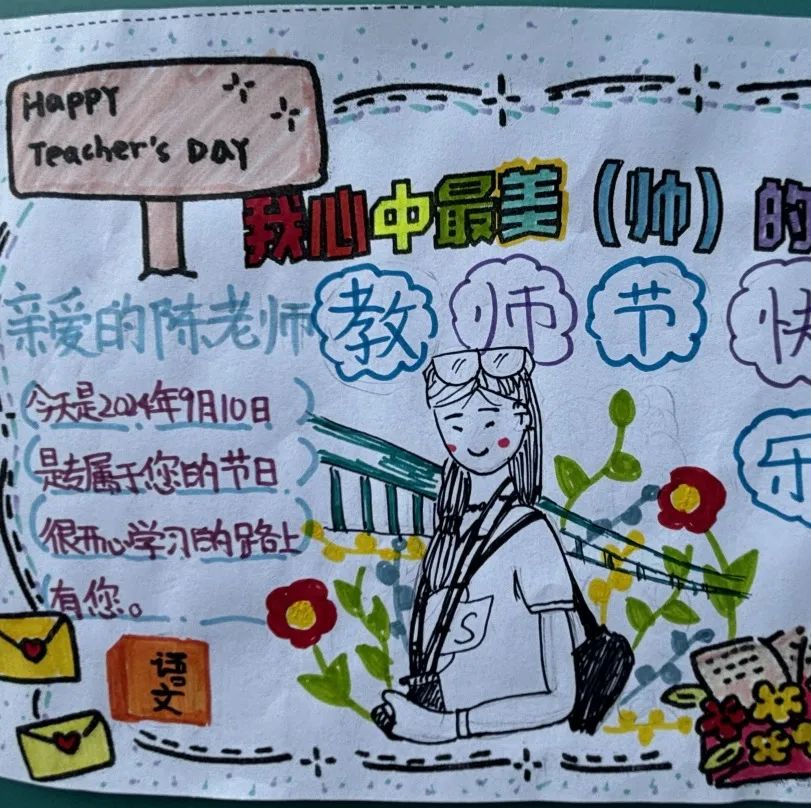 Happy
Teacher's DAY
我心中最美（帅）的
亲爱的陈老师
教师节快
乐
今天是2024年9月10日
是专属于您的节日
很开心学习的路上
有您。
S
语文